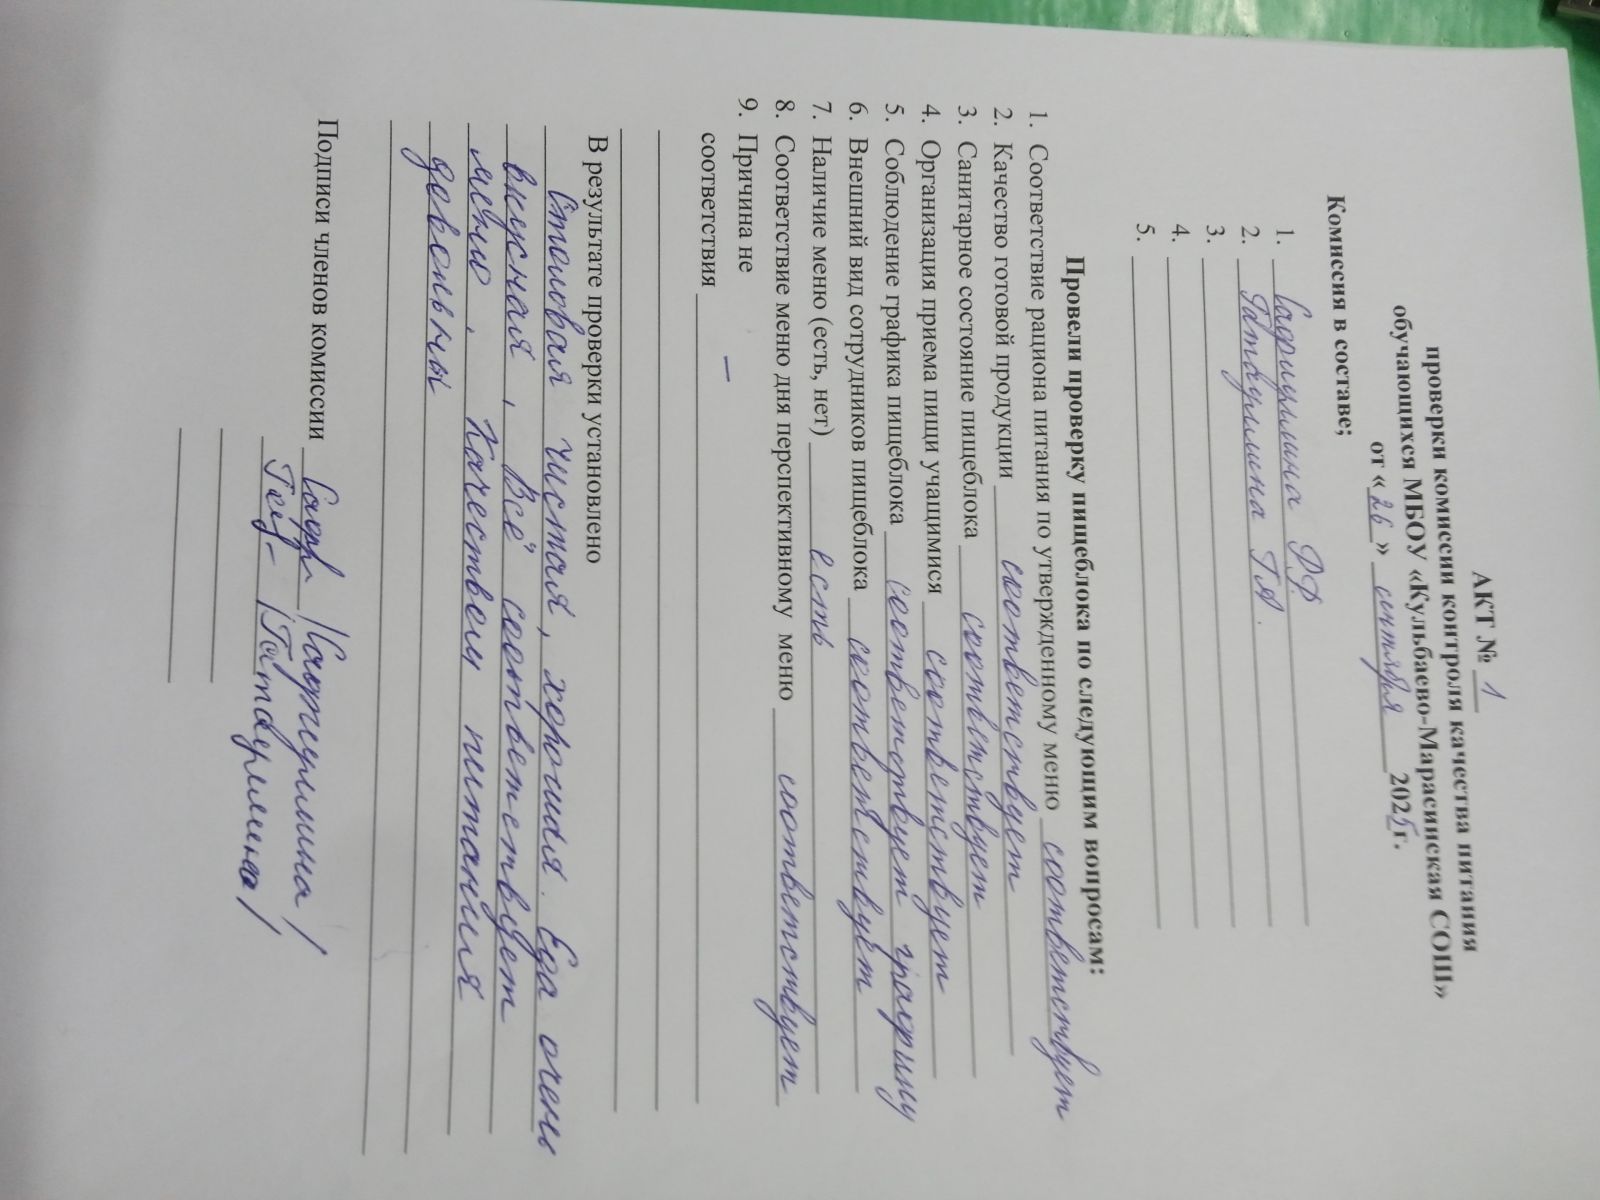 АКТ № 1
проверки комиссии контроля качества питания
обучающихся МБОУ «Кульбаево-Марасинская СОШ»
от « 26 » сентября 2025 г.
Комиссия в составе;
1. Садриулмина Р.Р.
2. Гатаулмина Г.А.
3.
4.
5.
Провели проверку пищеблока по следующим вопросам:
1. Соответствие рациона питания по утвержденному меню соответствует
2. Качество готовой продукции соответствует
3. Санитарное состояние пищеблока соответствует
4. Организация приема пищи учащимися соответствует
5. Соблюдение графика пищеблока соответствует графику
6. Внешний вид сотрудников пищеблока соответствует
7. Наличие меню (есть, нет) есть
8. Соответствие меню дня перспективному меню соответствует
9. Причина не
соответствия –
В результате проверки установлено
Столовая чистая, хорошая. Еда очень
вкусная, Всё соответствует
меню, Качеством питания
довольны
Подписи членов комиссии Садр /Садриулмина/
/Гатаулмина/